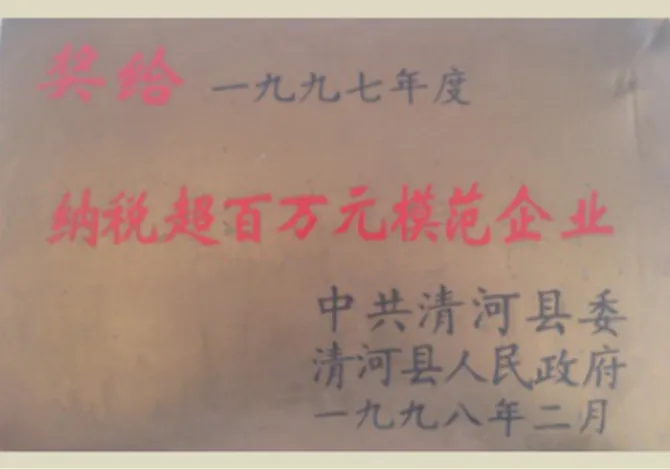 奖给 一九九七年度
纳税超百万元模范企业
中共清河县委
清河县人民政府
一九九八年二月